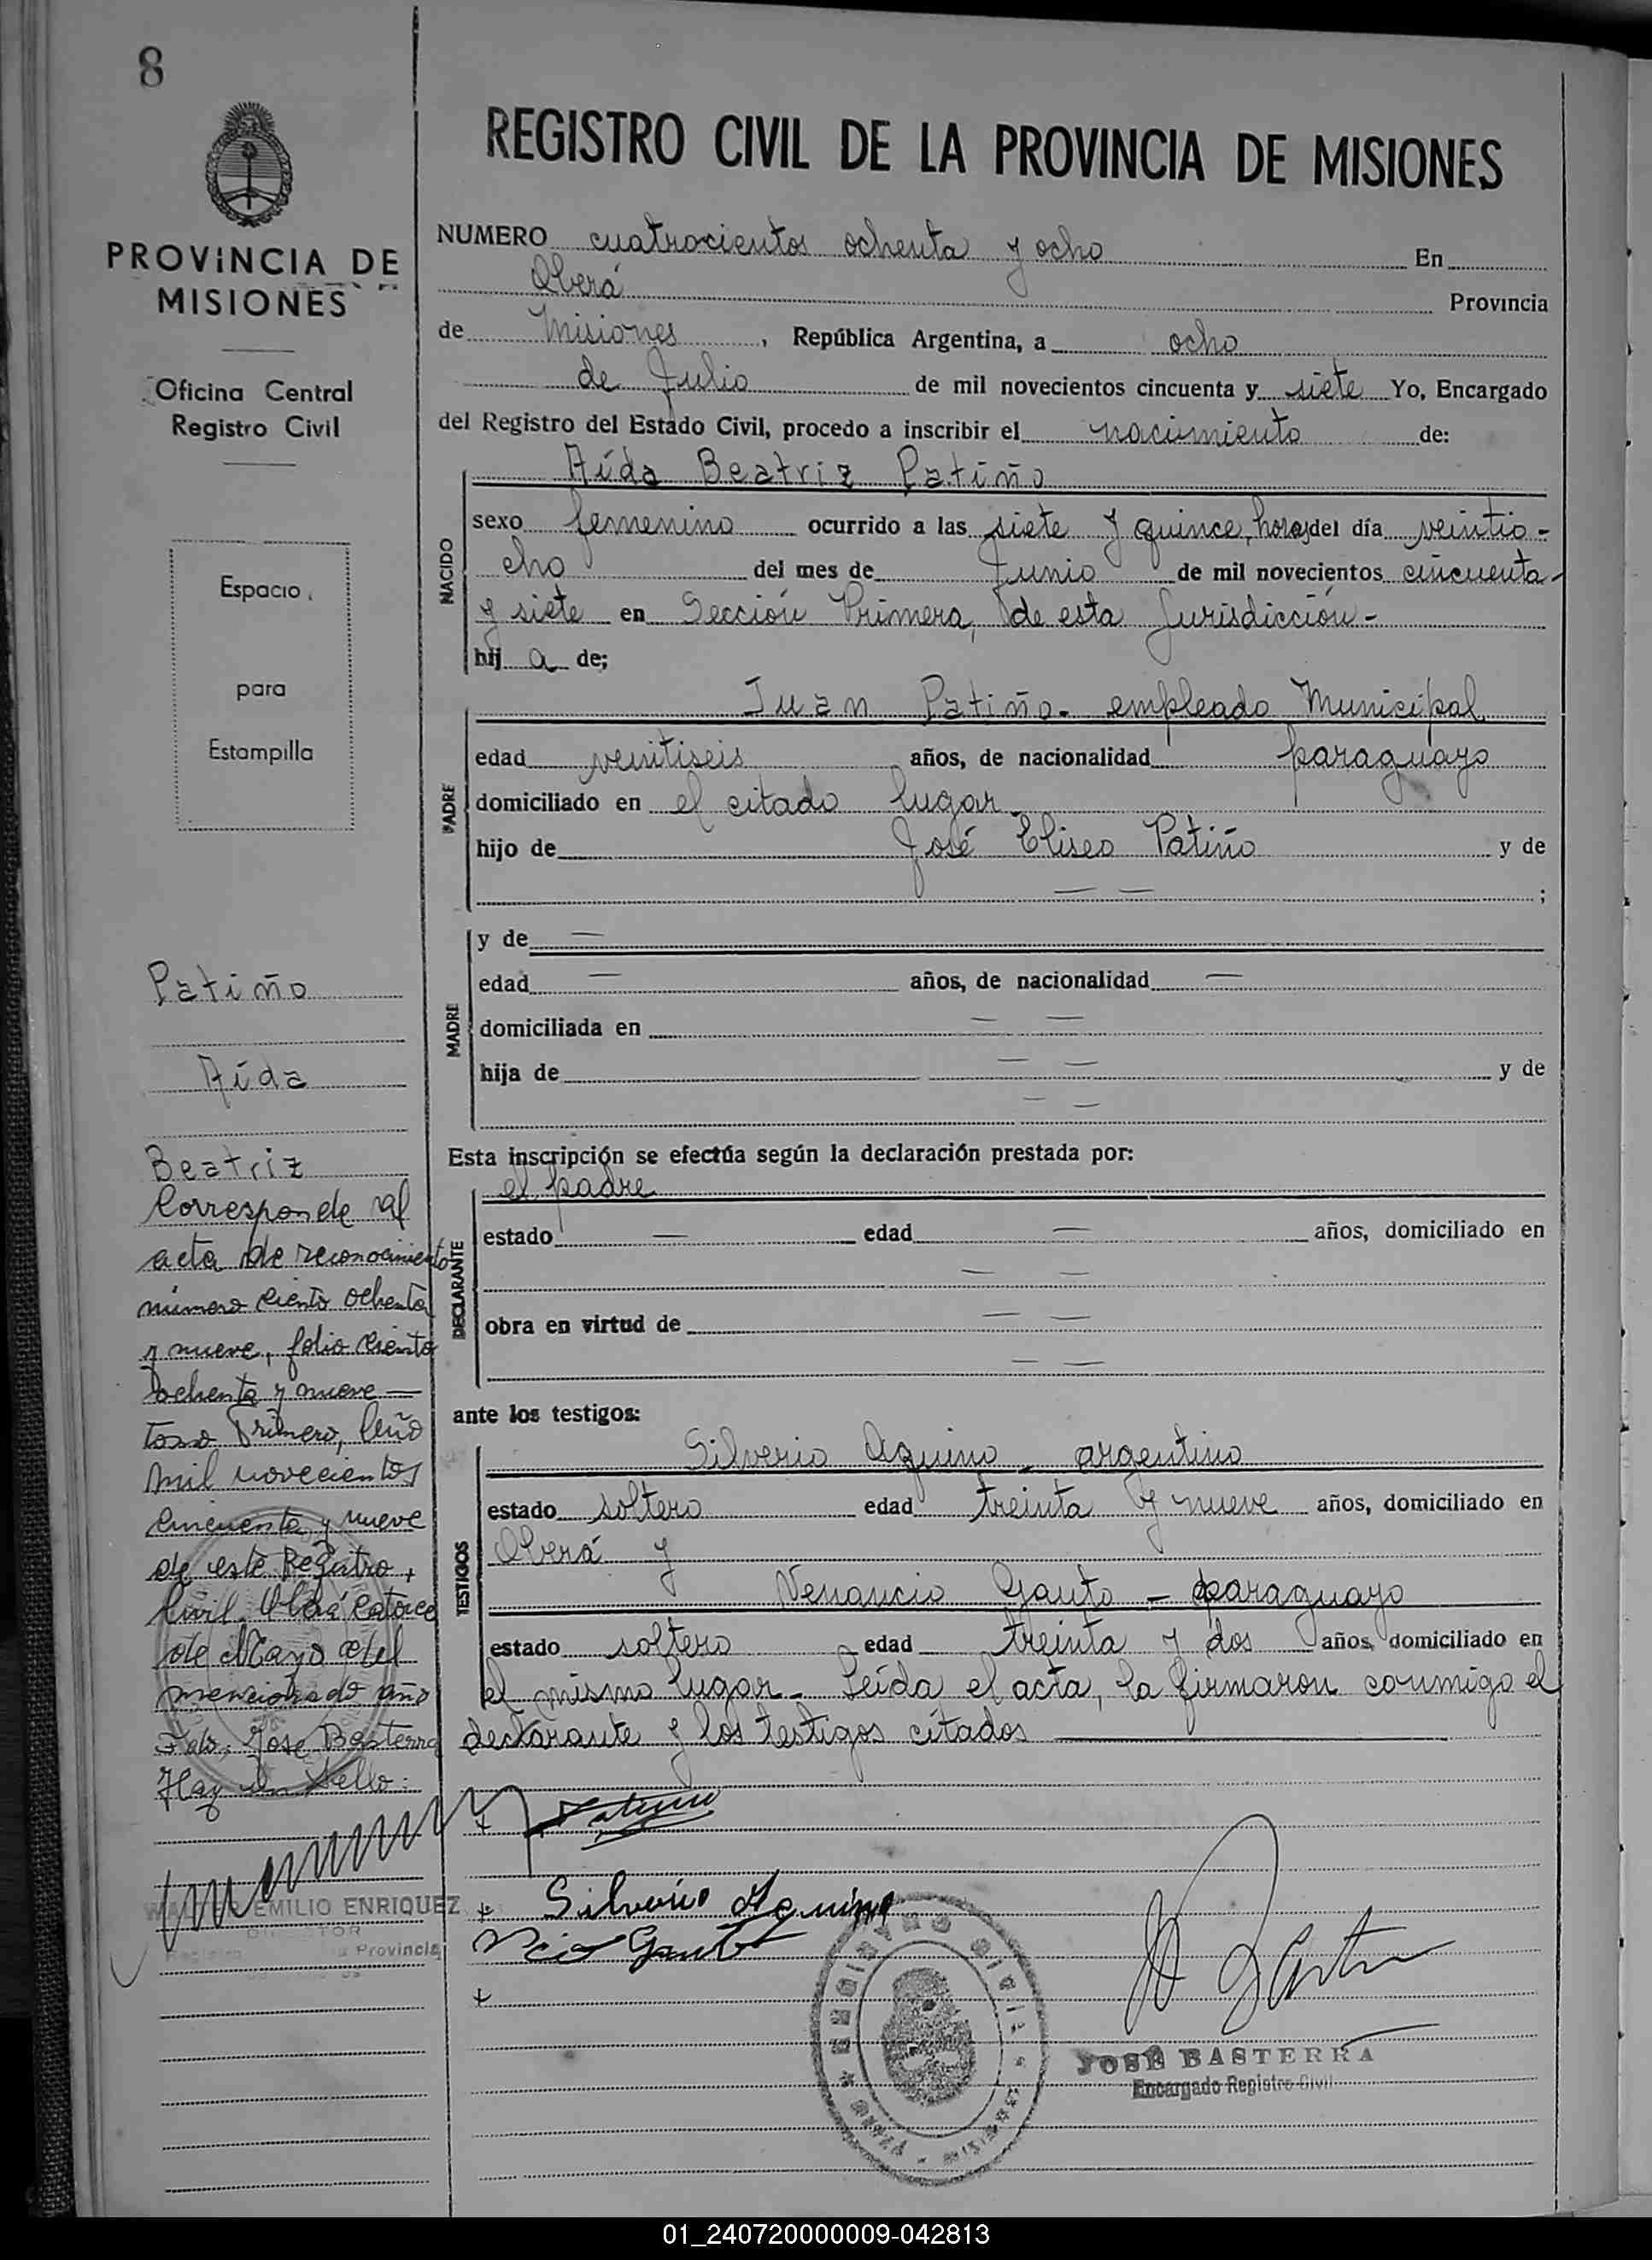 8
PROVINCIA DE
MISIONES
Oficina Central
Registro Civil
Espacio
para
Estampilla
Patiño
Aída
Beatriz
Corresponde al
acta de reconocimiento
número ciento ochenta
y nueve, folio ciento
ochenta y nueve —
tomo Primero, Año
mil novecientos
cincuenta y nueve
de este Registro
Civil. Oberá catorce
de Mayo del
mencionado año
Fdo: José Basterra
Hay un Sello:
EMILIO ENRIQUEZ
Provincia
REGISTRO CIVIL DE LA PROVINCIA DE MISIONES
NUMERO cuatrocientos ochenta y ocho En
Oberá Provincia
de Misiones, República Argentina, a ocho
de Julio de mil novecientos cincuenta y siete Yo, Encargado
del Registro del Estado Civil, procedo a inscribir el nacimiento de:
Aída Beatriz Patiño
NACIDO
sexo femenino ocurrido a las siete y quince, horas del día veintio-
cho del mes de Junio de mil novecientos cincuenta-
y siete en Sección Primera, de esta Jurisdicción-
hij a de;
Juan Patiño- empleado Municipal
PADRE
edad veintiseis años, de nacionalidad paraguayo
domiciliado en el citado lugar-
hijo de José Eliseo Patiño y de
— — ;
MADRE
y de —
edad — años, de nacionalidad —
domiciliada en — —
hija de — — y de
— —
Esta inscripción se efectúa según la declaración prestada por:
el padre
DECLARANTE
estado — edad — años, domiciliado en
— —
obra en virtud de — —
— —
ante los testigos:
Silverio Aquino - argentino
TESTIGOS
estado soltero edad treinta y nueve años, domiciliado en
Oberá y
Venancio Gauto - paraguayo
estado soltero edad treinta y dos años, domiciliado en
el mismo lugar- Leída el acta, la firmaron conmigo el
declarante y los testigos citados
Silverio Aquino
Gauto
REGISTRO CIVIL
JOSÉ BASTERRA
Encargado Registro Civil
01_240720000009-042813